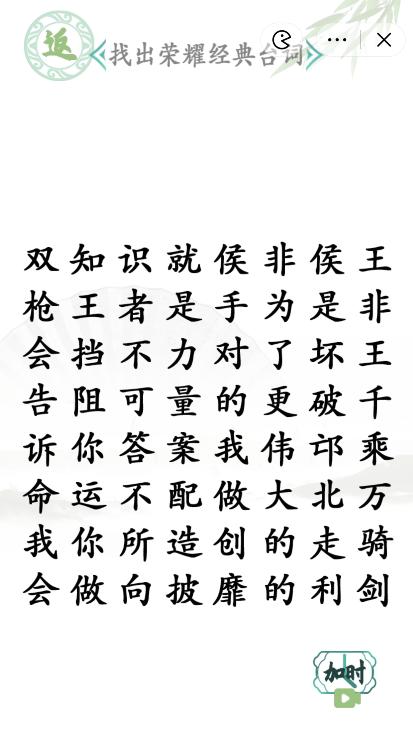 返
找出荣耀经典台词
双知识就侯非侯王
枪王者是手为是非
会挡不力对了坏王
告阻可量的更破千
诉你答案我伟邙乘
命运不配做大北万
我你所造创的走骑
会做向披靡的利剑
加时